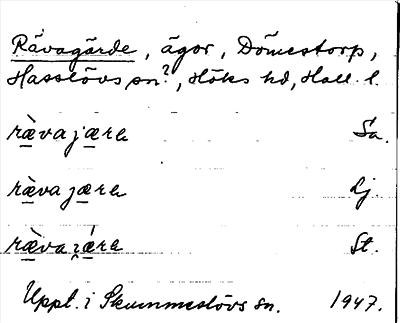 Rävagärde, ägor, Dömestorp,
Hasslövs sn?, Höks hd, Hall. l.
ræ̀vajæra Sa.
rævajæra Lj.
rævaʒǽra St.
Uppt. i Skummeslövs sn. 1947.